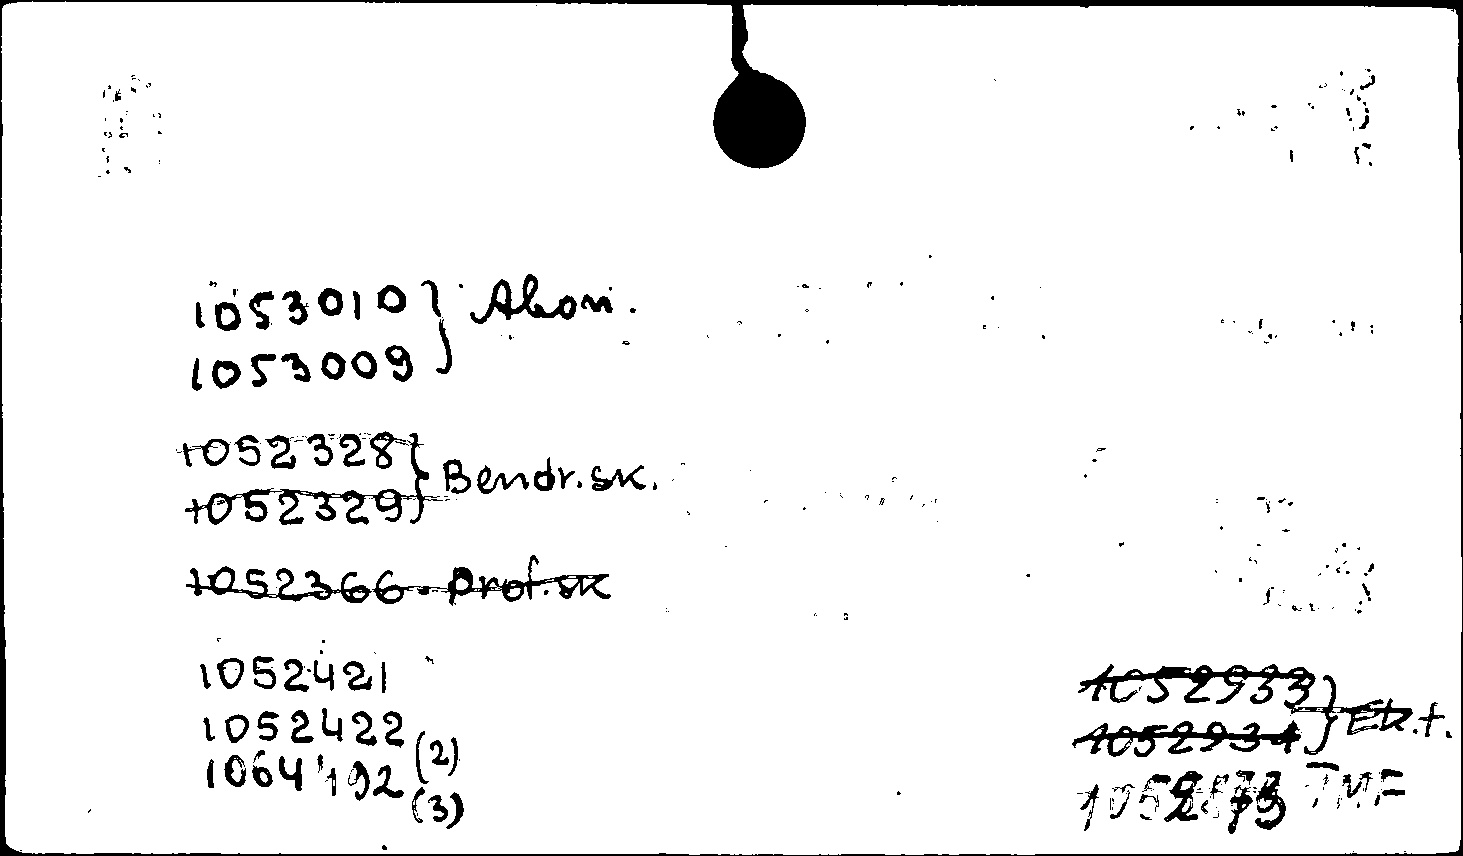 1053010 } Abon.
1053009
1052328 } Bendr.sk.
1052329
1052366 - Prof.sk
1052421
1052422 (2)
1064192 (3)
1052933 } Ek.t.
1052934
TMF